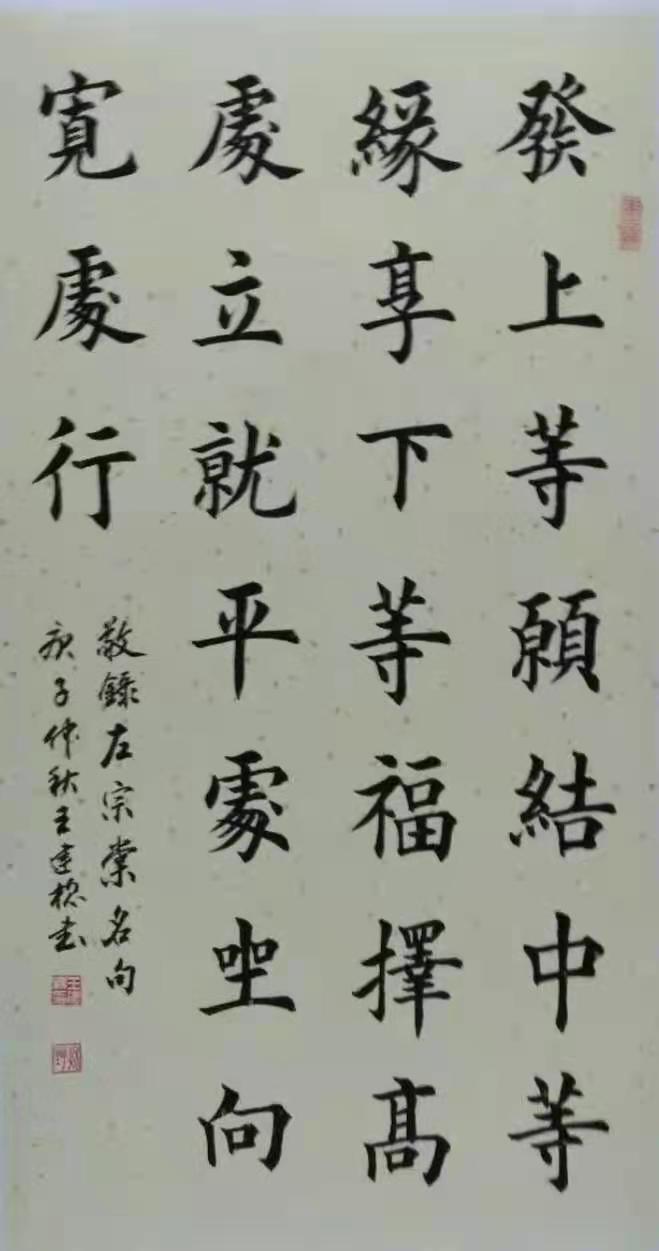 發上等願結中等
緣享下等福擇高
處立就平處坐向
寬處行
敬錄左宗棠名句
庚子仲秋王建